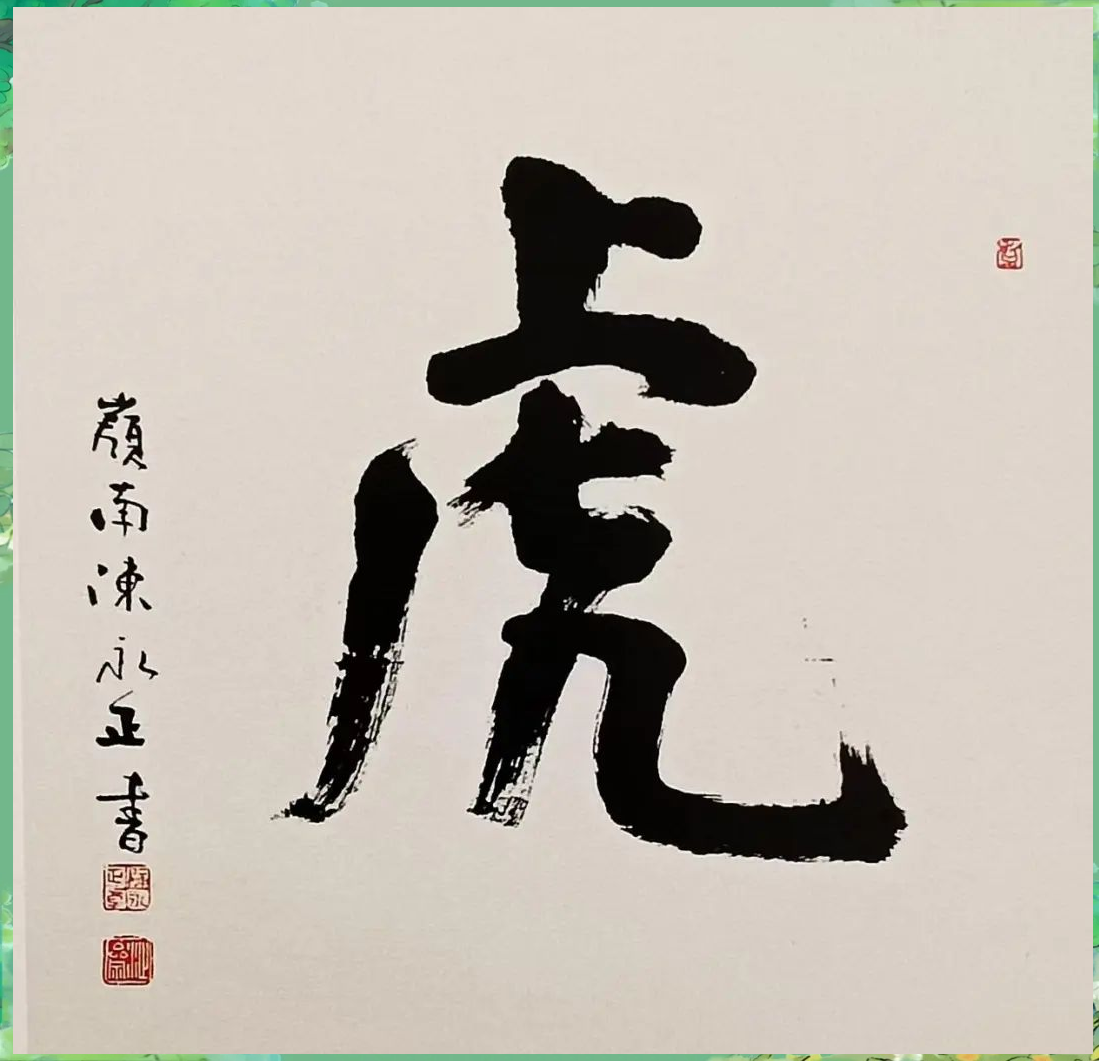 虎
嶺南陳永正書